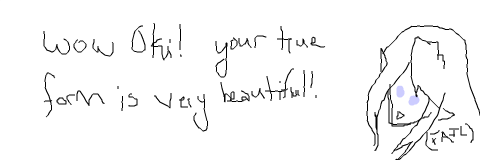 wow Oki! your true
form is very beautiful!!
(FAIL)